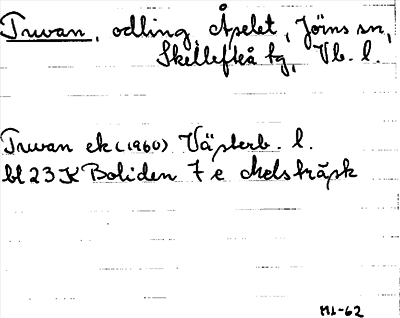 Truvan, odling, Åselet, Jörns sn,
Skellefteå tg, Vb. l.
Truvan ek (1960) Västerb. l.
bl 23 K Boliden 7 e Melsträsk
ML-62